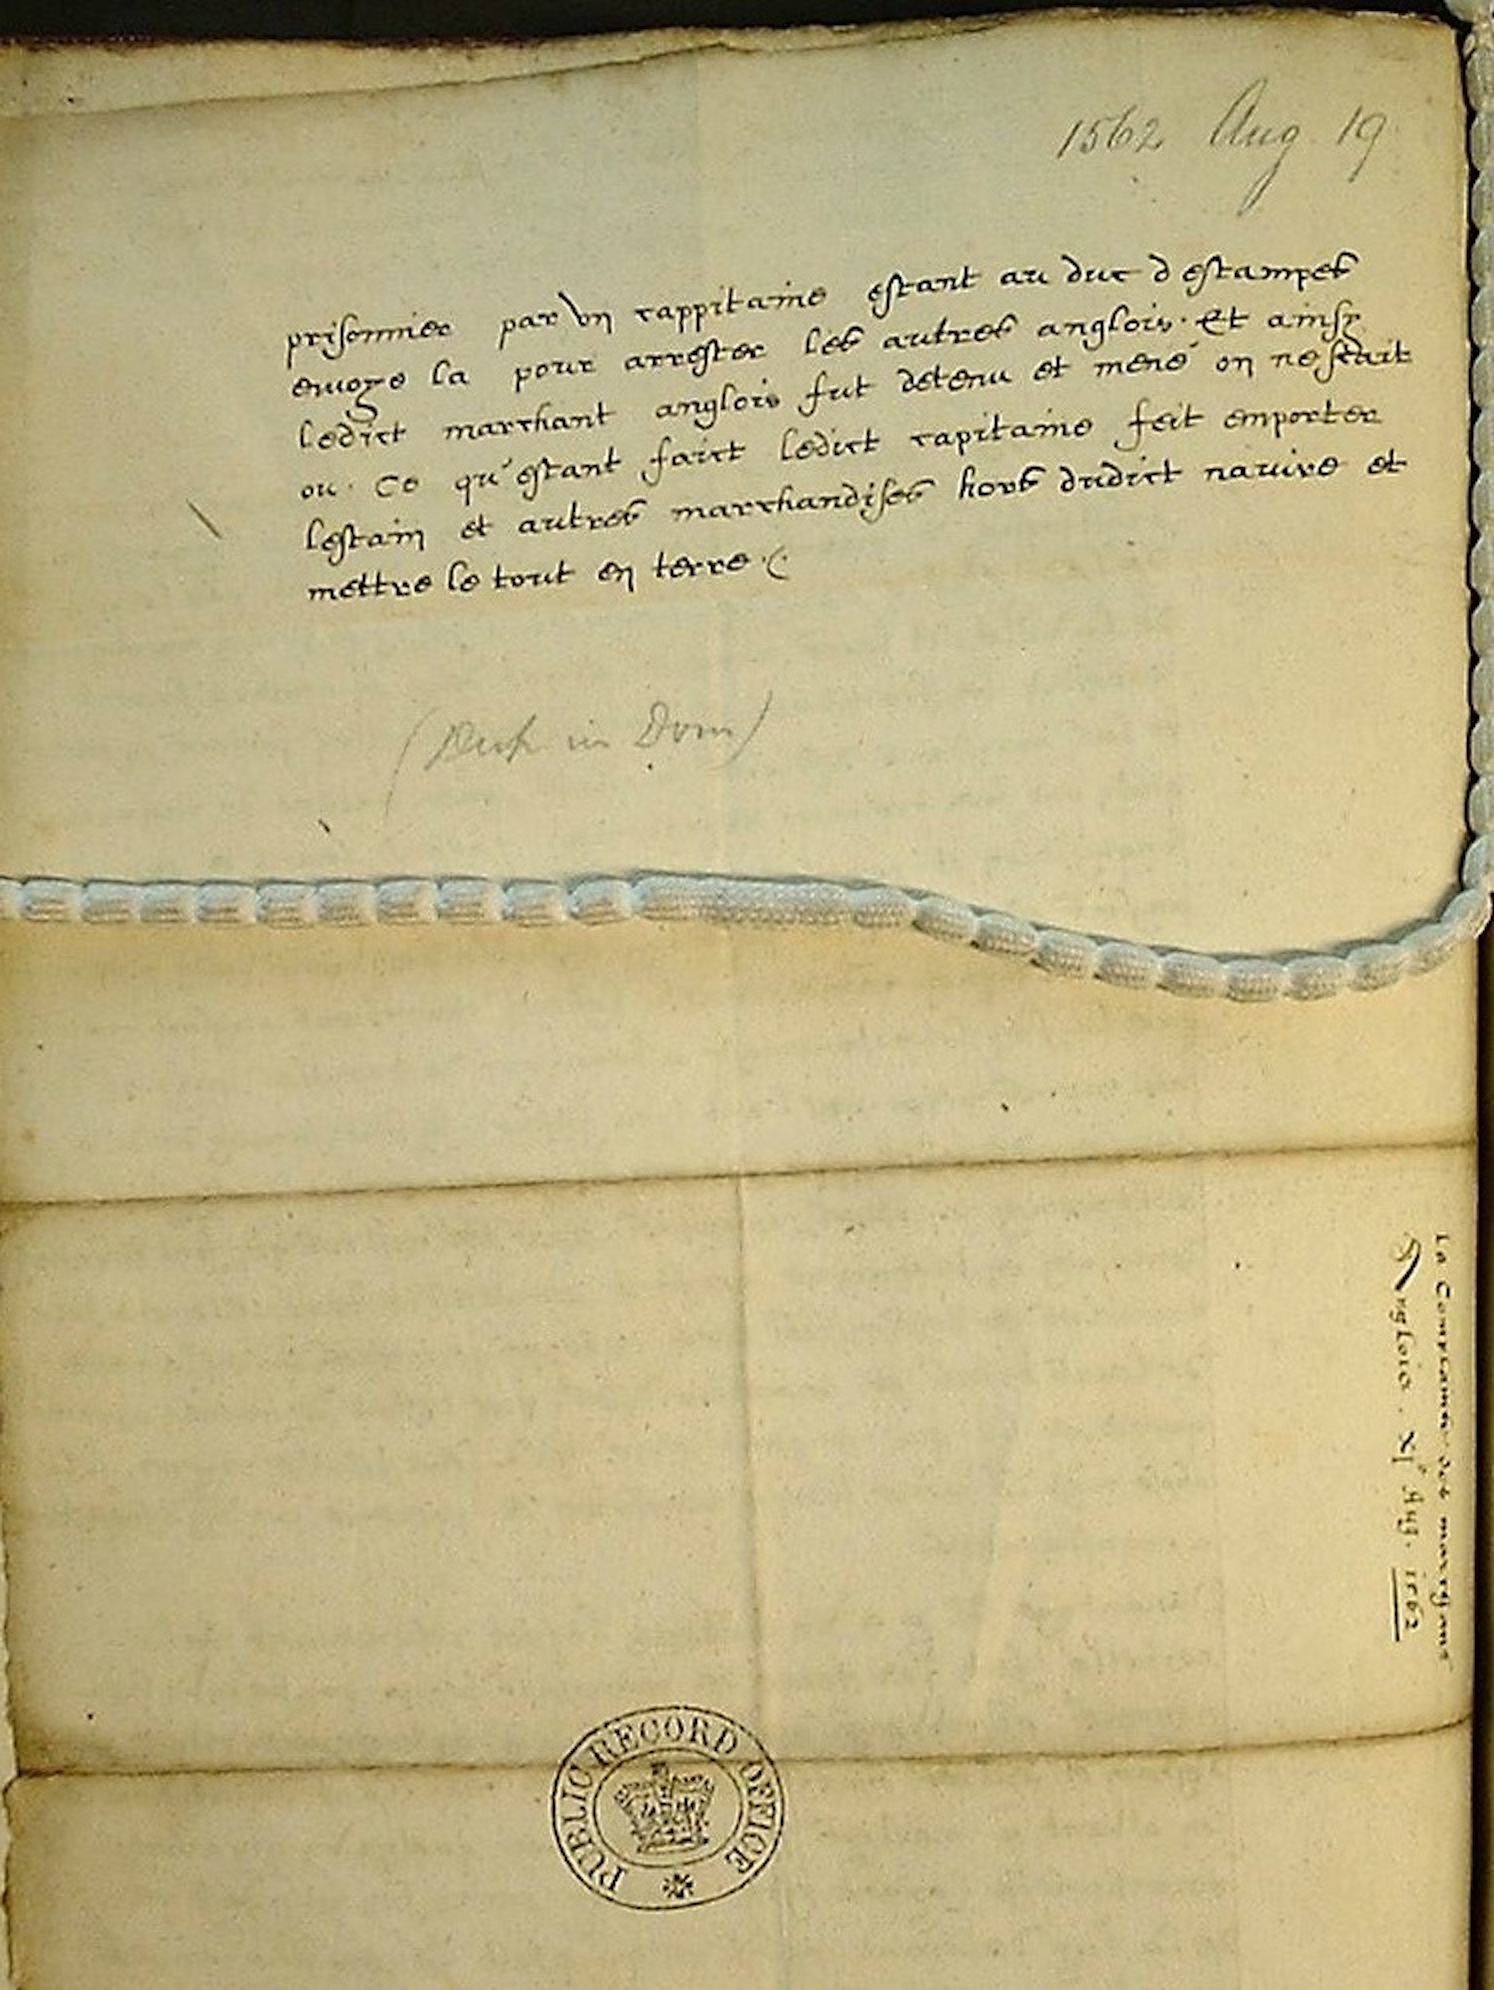 1562 Aug. 19
prisonnier par un cappitaine estant au duc d estampes
envoye la pour arrester les autres anglois. Et ainsy
ledict marchant anglois fut detenu et mené on ne scait
ou. Ce qu'estant faict ledict capitaine feit emporter
lestain et autres marchandises hors dudict navire et
mettre le tout en terre.
in Dom)
La des
Anglois. Aug. 1562
PUBLIC RECORD OFFICE